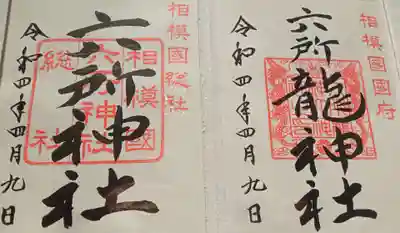 相模國総社
六所神社
相模國
六所神社
総社
令和四年四月九日
相模國国府
六所龍神社
令和四年四月九日